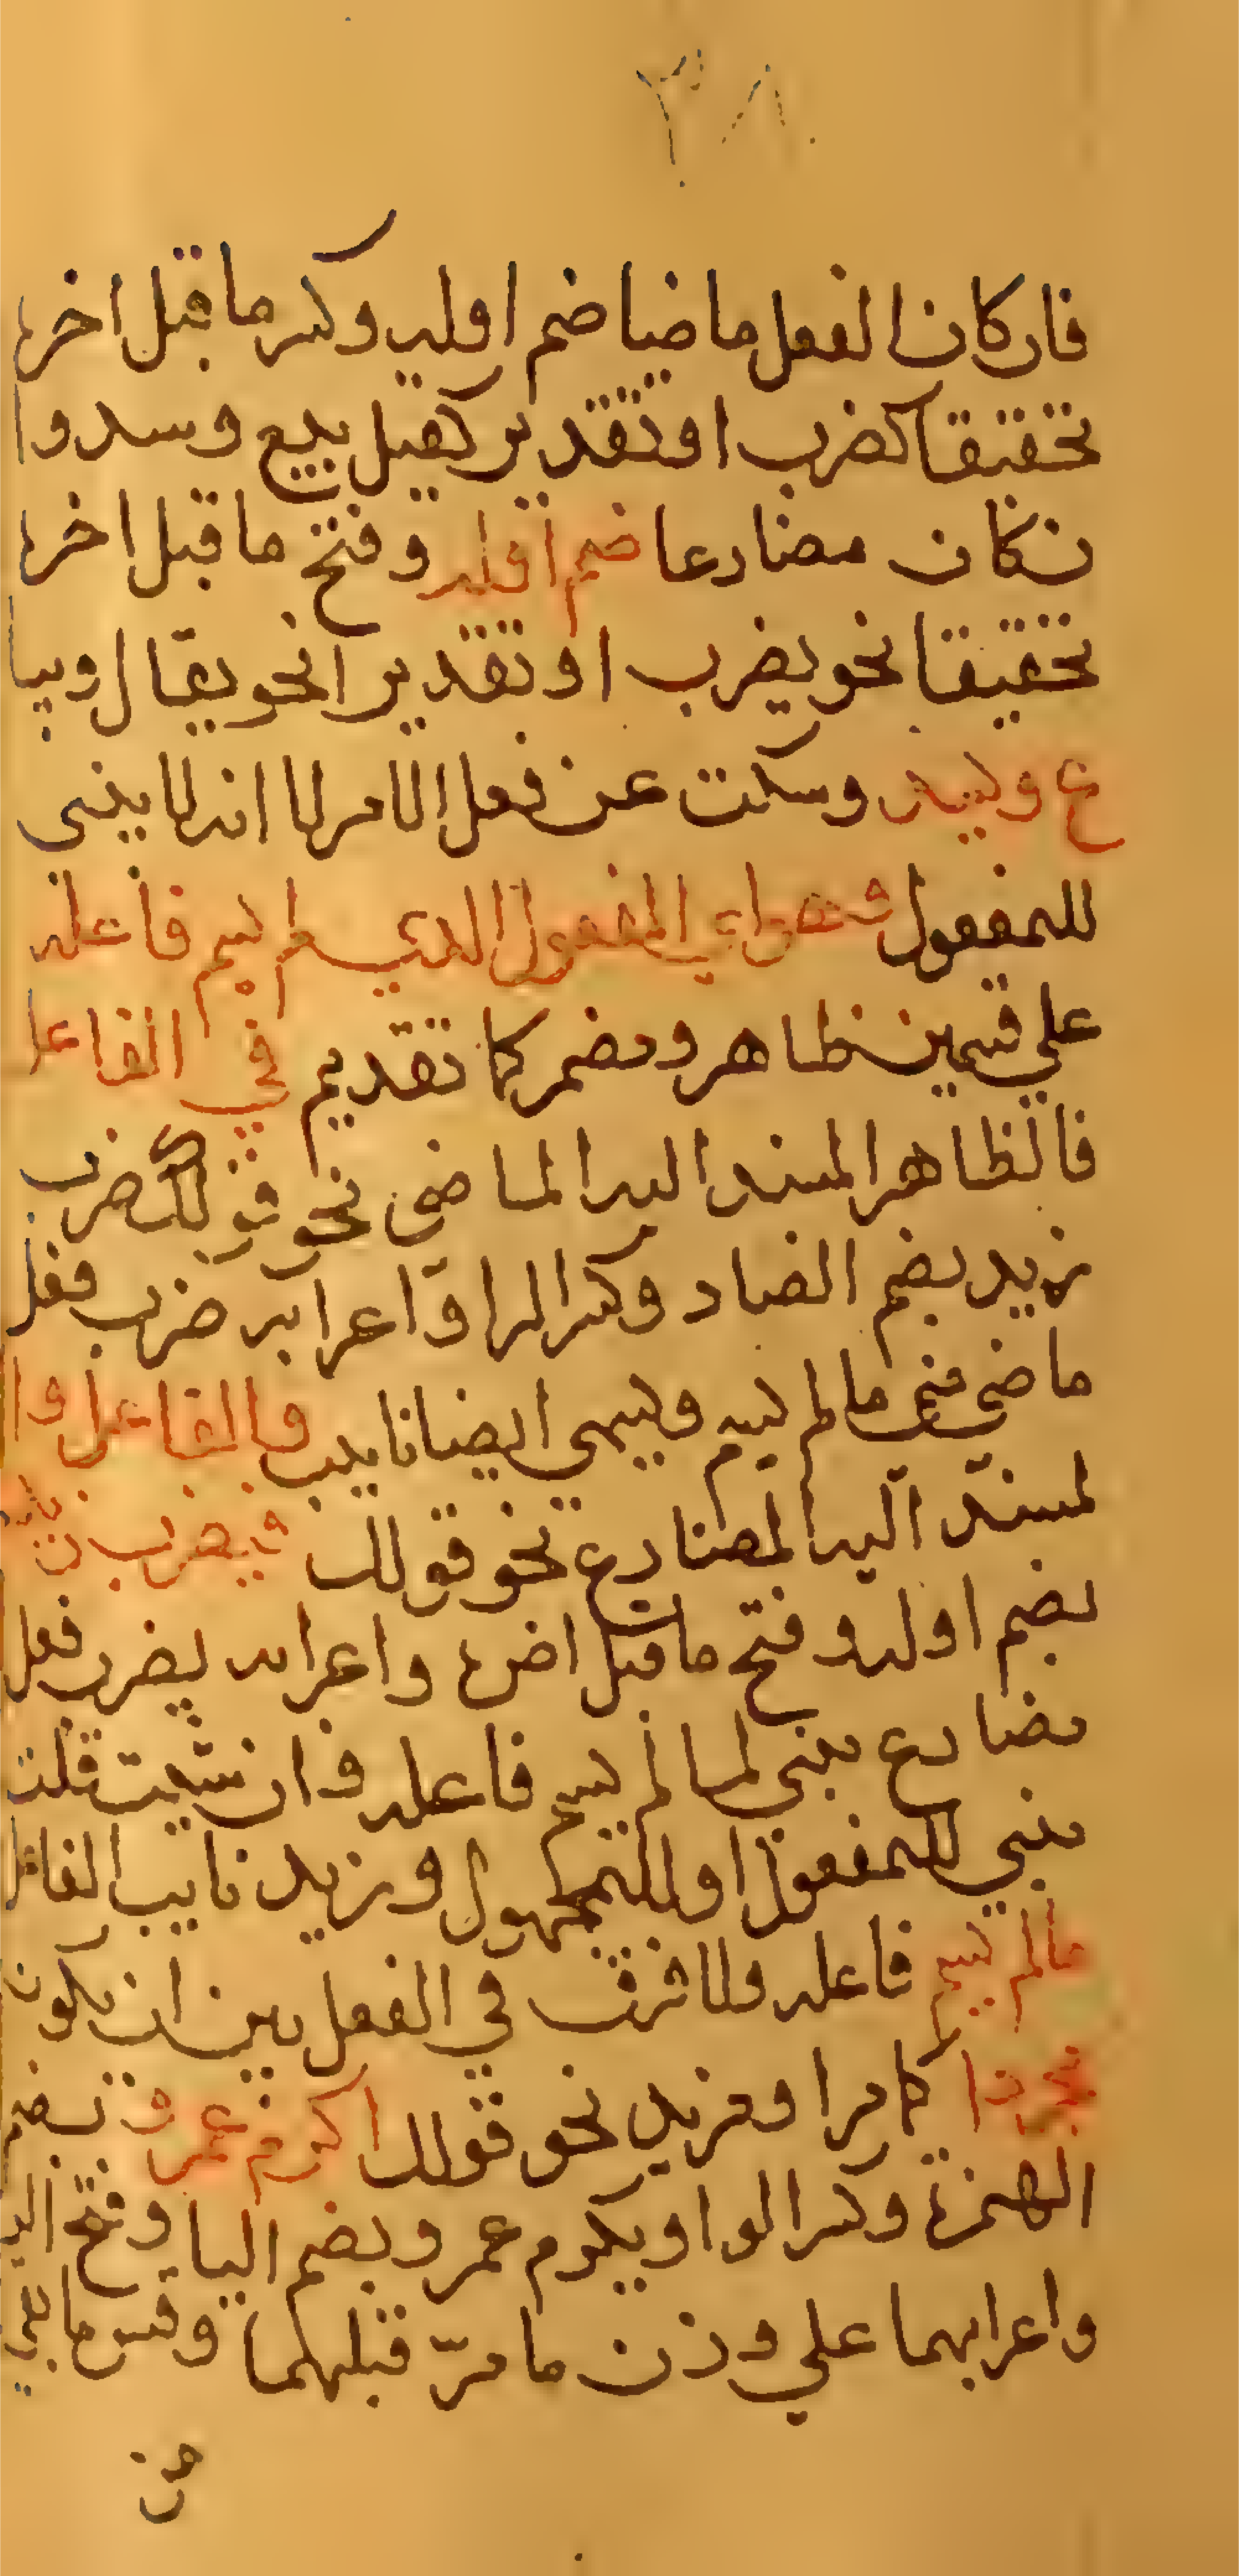 ٣٨
فان كان الفعل ماضيا ضم اوله وكسر ما قبل اخره
تحقيقا كضرب او تقدير كقيل بيع وسد وا
ن كان مضارعا ضم اوله وفتح ما قبل اخره
تحقيقا نحو يضرب او تقديرا نحو يقال ويبا
ع وليد وسكت عن فعل الامر لا انه لا يبنى
للمفعول وهو اي المفعول الذي لم يسم فاعله
علي قسمين ظاهر ومضمر كما تقديم في الفاعل
فالظاهر المسند اليه الماضى نحو قولك ضرب
زيد بضم الضاد وكسر الرا واعرابه ضرب فعل
ماضي مبني ما لم يسم ويسمي ايضا نايب فا الفاعل وا
لمسند اليه المضارع نحو قولك يضرب زيد
بضم اوله وفتح ما قبل اخره واعرابه يضرب فعل
مضارع مبني لما لم يسم فاعله وان شيت قلت
مبني للمفعول او للمجهول وزيد نايب الفاعل
مالم يسم فاعله ولا فرق في الفعل بين ان يكون
مجردا كامرا ومزيد نحو قولك اكرم عمرو بضم
الهمزة وكسر الوا ويكرم عمرو بضم اليا وفتح الر
واعرابهما علي وزن ما مرّ قبلهما وقس ما بقي
من